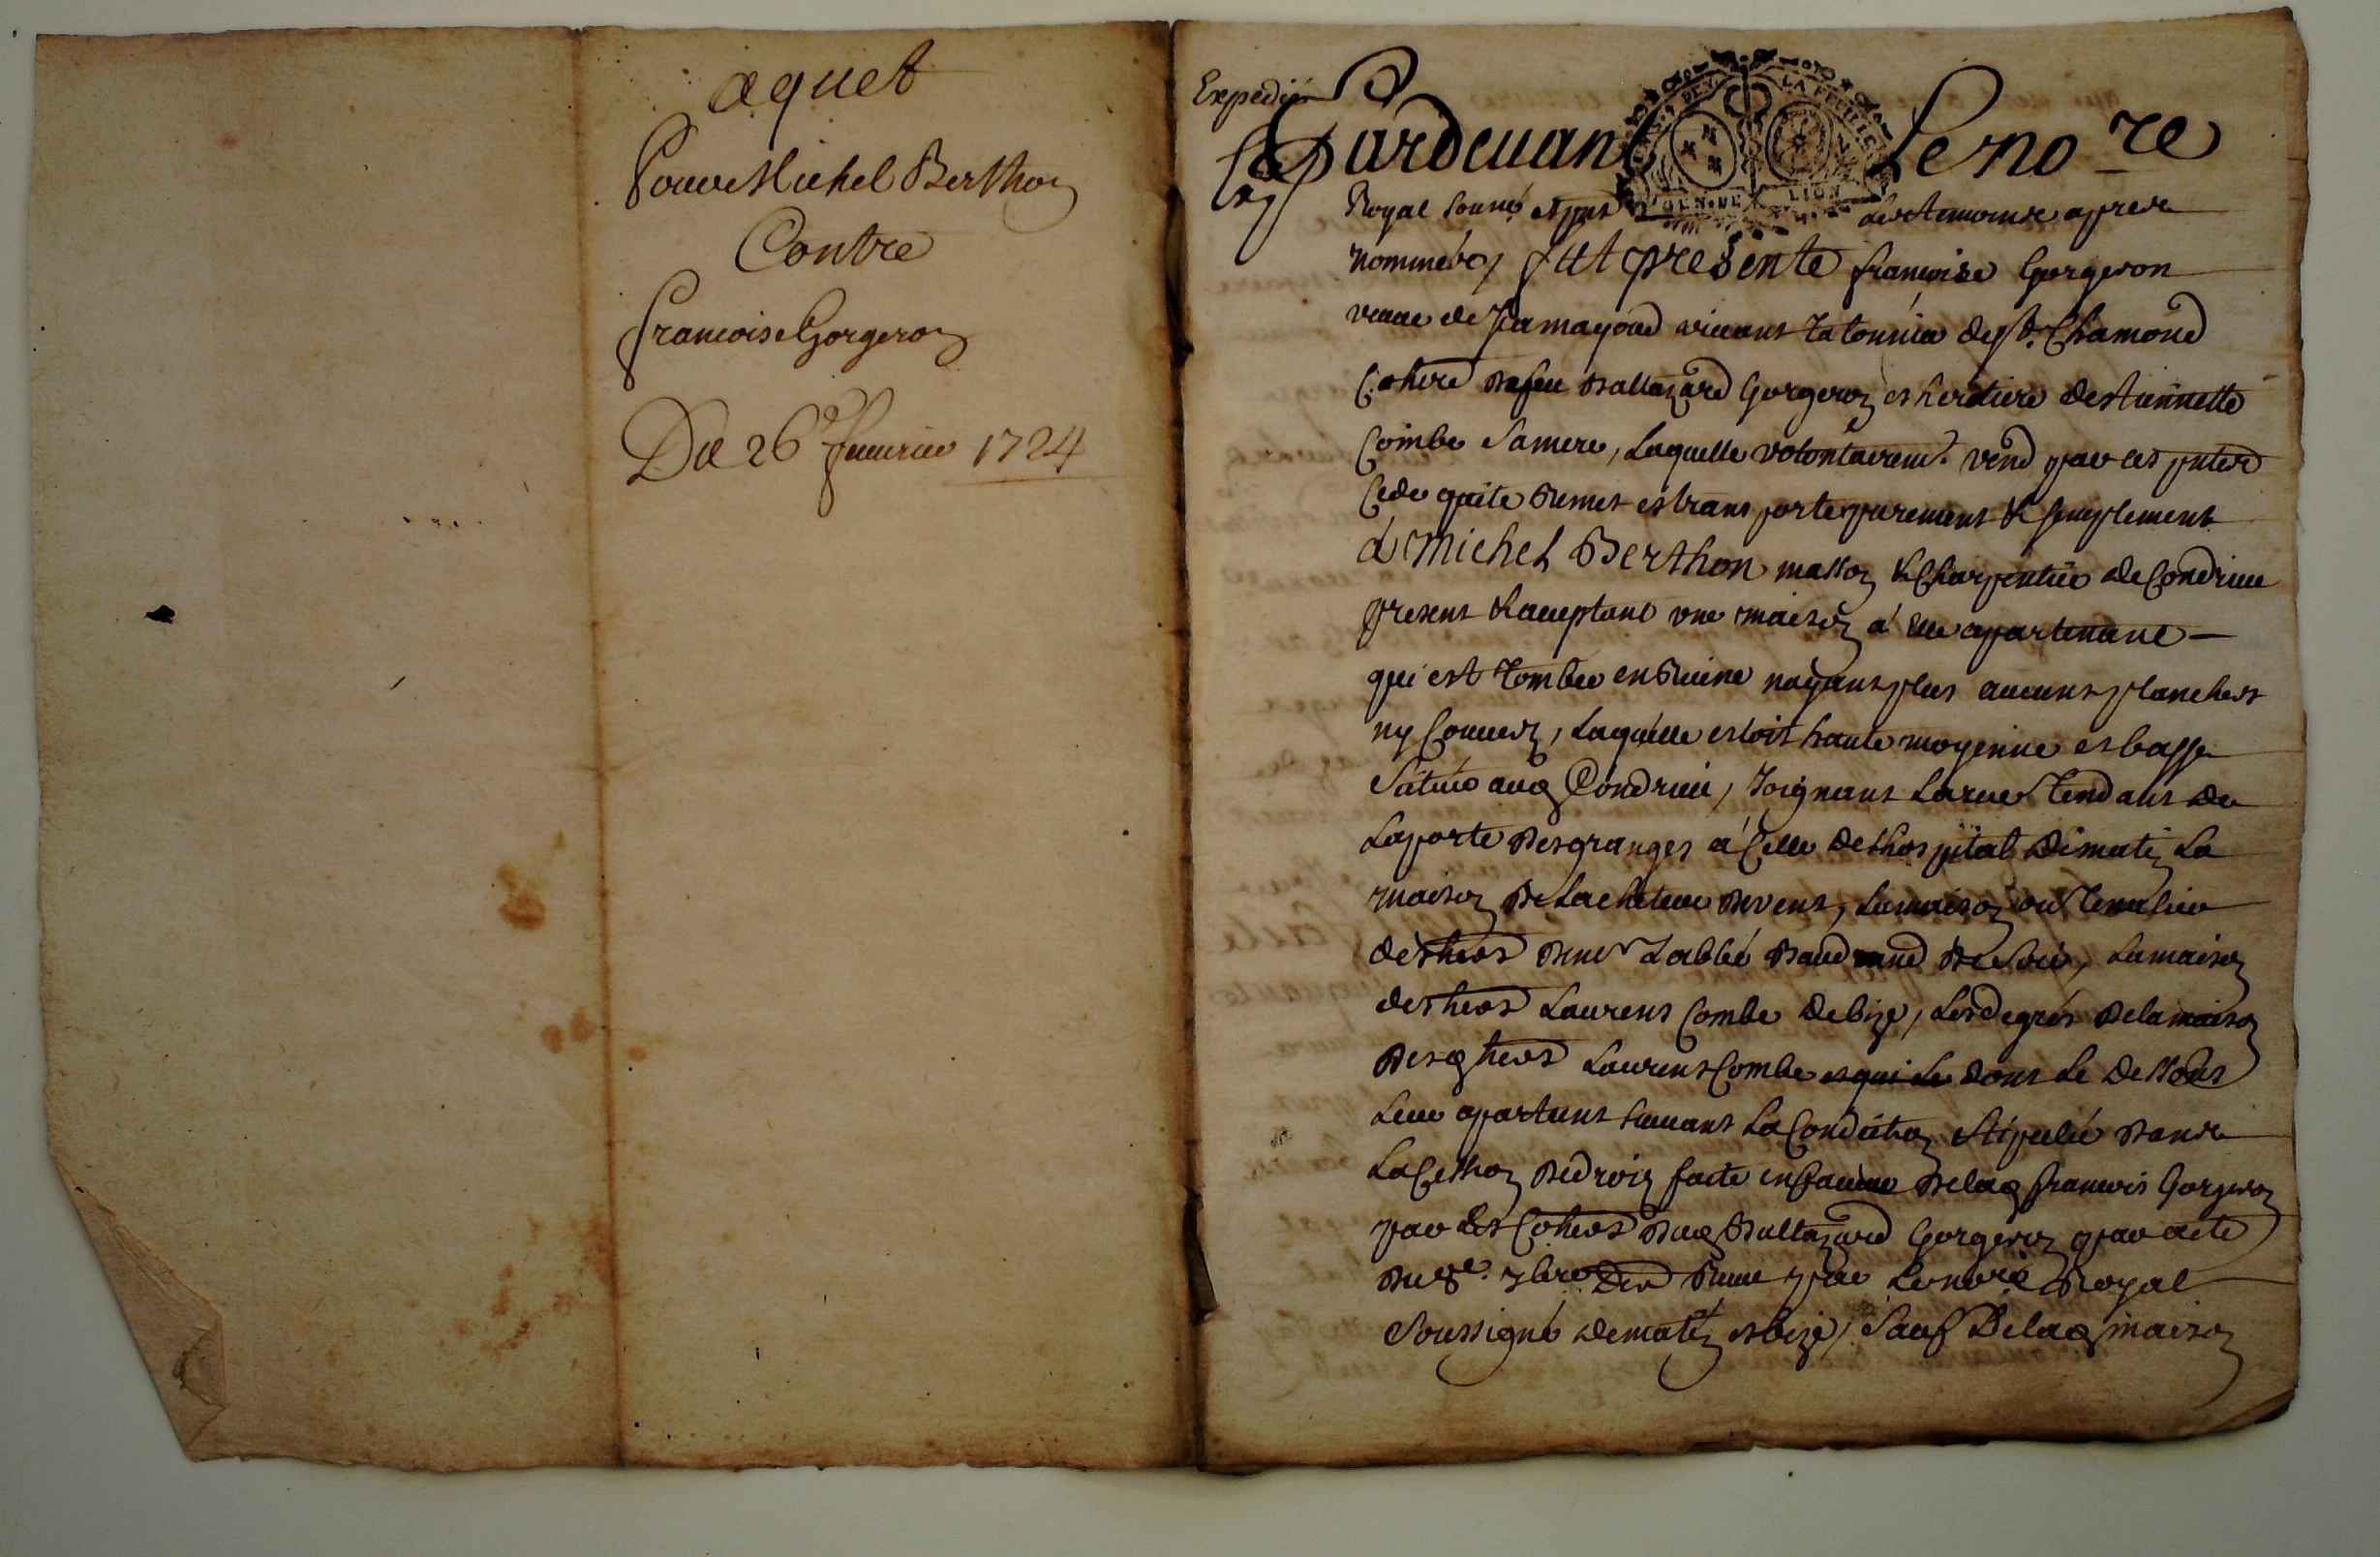 aquet
Pour Michel Berthon
Contre
francoise Gorgeron
Du 26e feuurier 1724
Expedié
Pardeuant Le nore
GEN. DE LION
Royal soussé et pnt les temoins apres
nommés, fut presente francoise Gorgeron
veuue de Jean mayoud viuant de St. Chamond
Cohere de feu Baltazard Gorgeron et heretiere destiennette
Combe Sa mere, Laquelle volontairemt. vend par ces pntes
Cede quite Remet et transporte purement & simplement
à Michel Berthon masson & Charpentier de Condrieu
present & aceptant une maison à elle apartenant
qui est tombée en Ruine nayant plus aucuns planchers
ny Couuert, Laquelle estoit haute moyenne et basse
Située aud Condrieu, Joignant La rue Tendant de
La porte des granges à Celle de Lhospital de matin La
maison de Lacheteur de vent, La maison ou Tenalier
des heors de mr Labbé de Soir, La maison
des heors Laurens Combe de bize, Les degrés de la maison
desd heors Laurens Combe et qui Le dont Le dessous
Leur apartient suiuant La Condition Stipulée dans
La Cession de droits faite en faueur de lad francois Gorgeron
par Les Coheors dud Baltazard Gorgeron par acte
du 8e. Reçeue par Le nore Royal
Soussigné de matin et bize, Sauf De lad maison